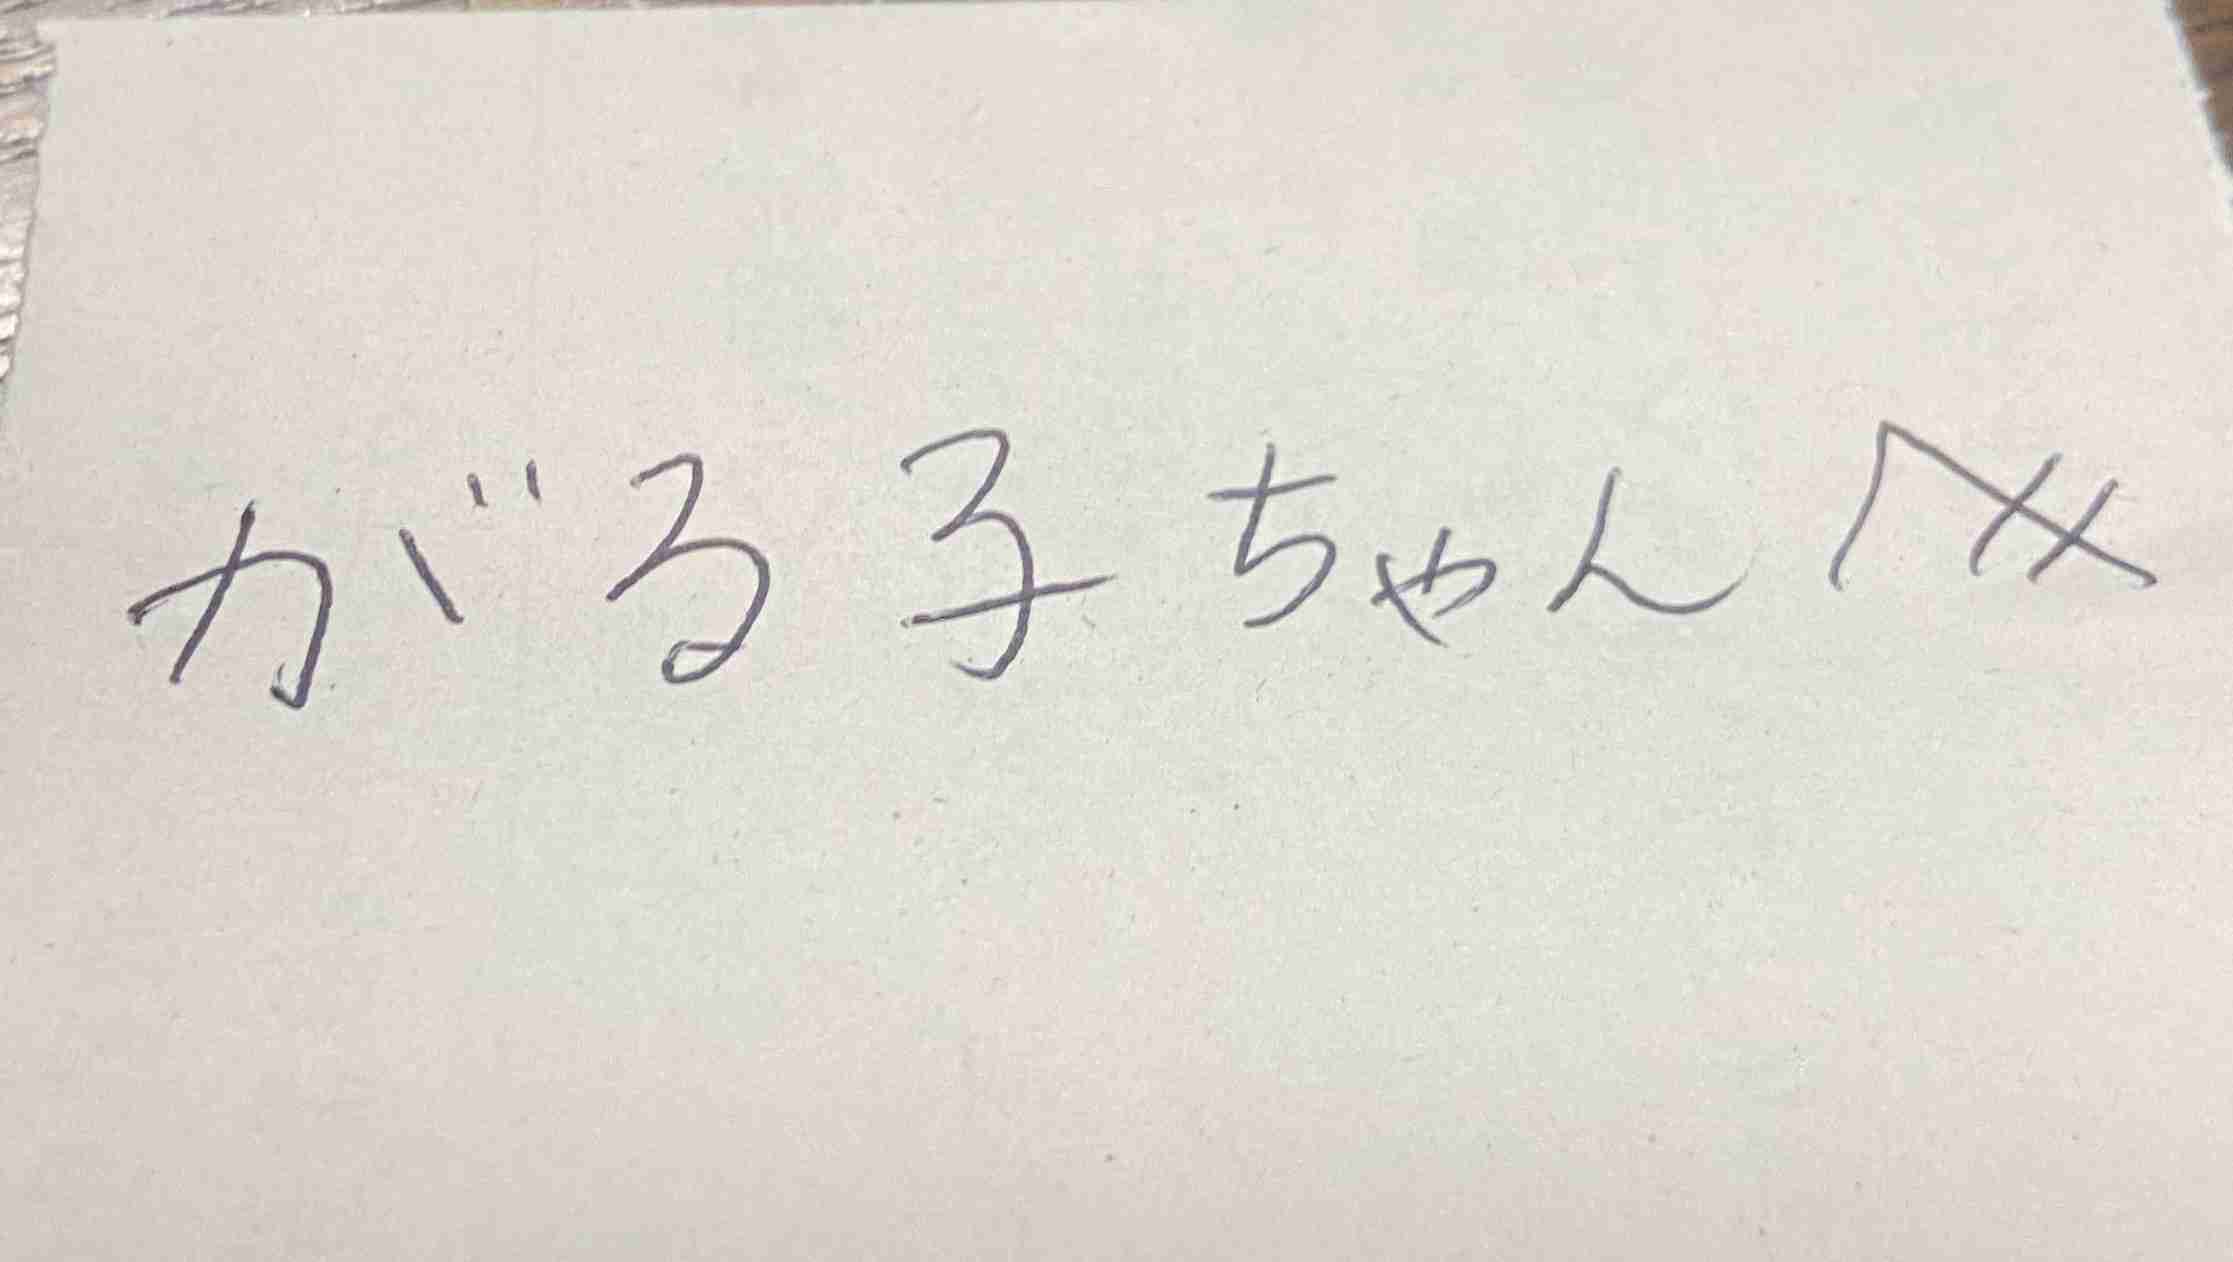 がる子ちゃんへ